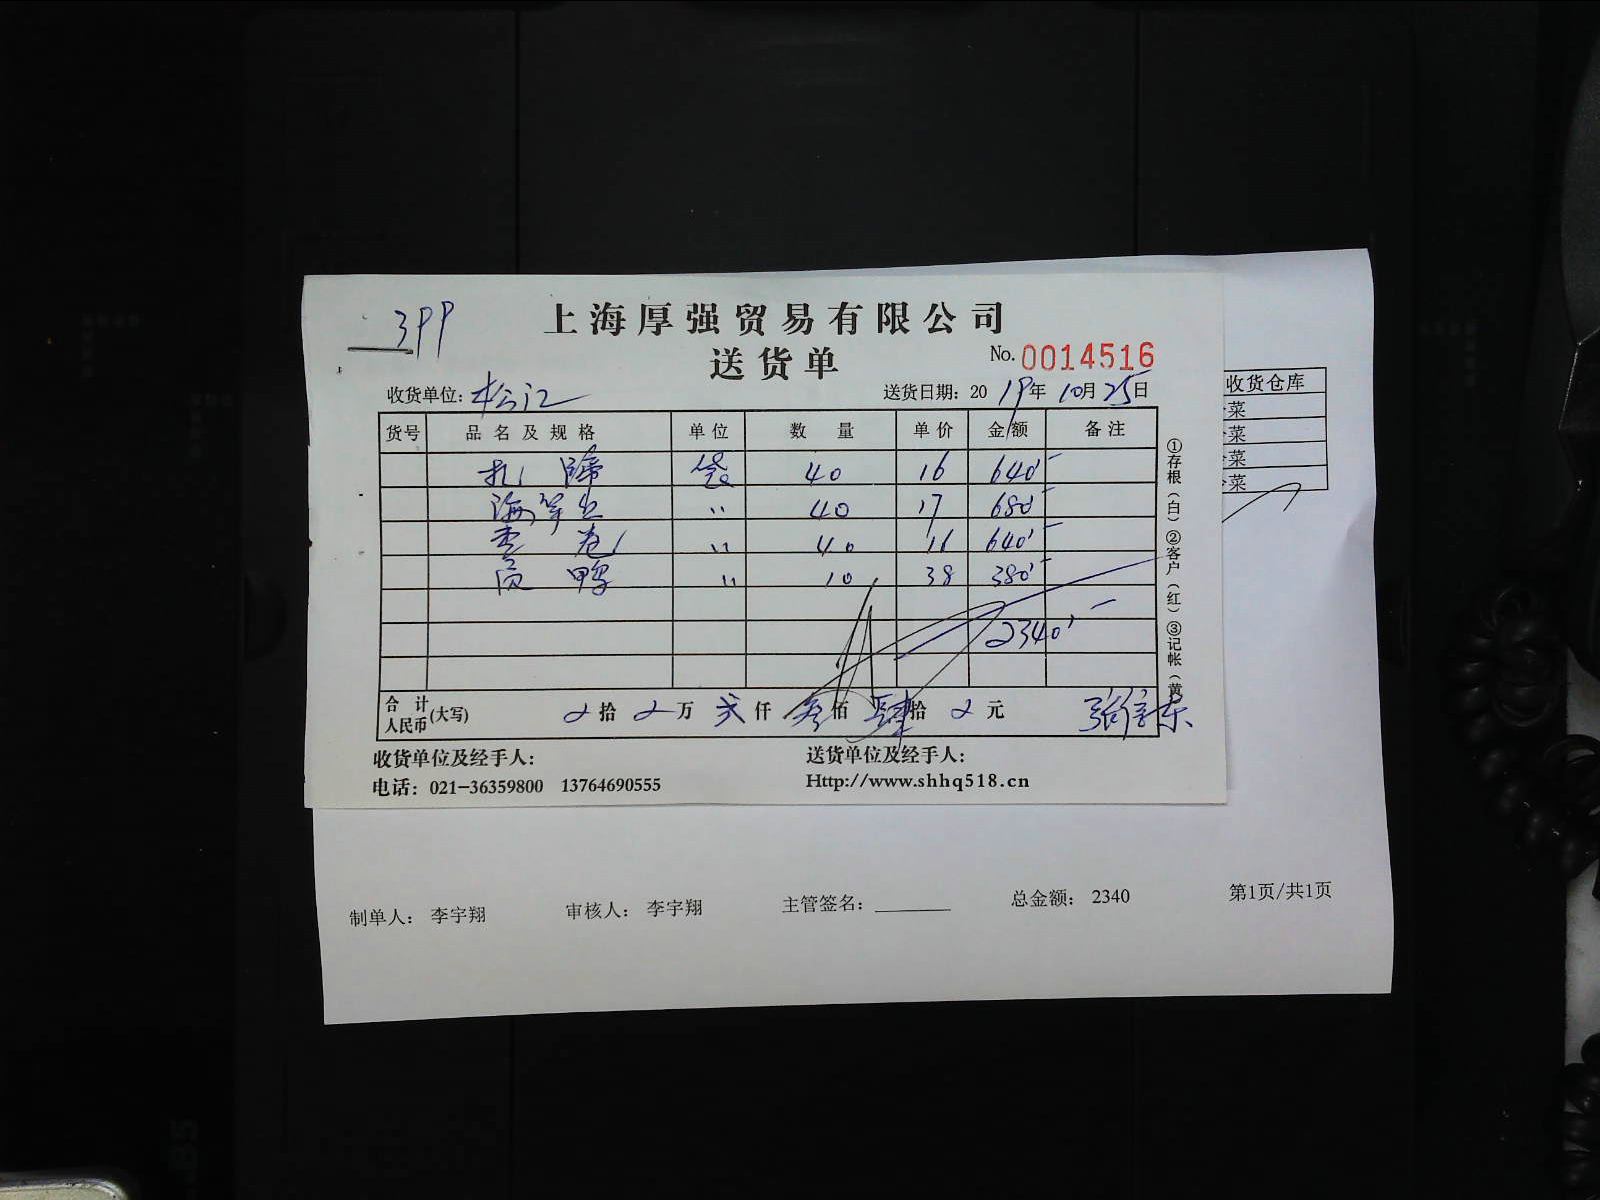 399
上海厚强贸易有限公司
送货单
No. 0014516
收货单位: 松江
送货日期: 2019年10月25日
货号 品名及规格 单位 数量 单价 金额 备注
扎蹄 袋 40 16 640
海草丝 〃 40 17 680
素卷 〃 40 16 640
鸭 〃 10 38 380
2340
合计人民币(大写) 拾 万 贰仟 叁佰 肆拾 元
①存根(白)②客户(红)③记帐(黄
收货单位及经手人:
送货单位及经手人:
电话: 021-36359800 13764690555
Http://www.shhq518.cn
收货仓库
菜
菜
菜
菜
制单人: 李宇翔 审核人: 李宇翔 主管签名: 总金额: 2340 第1页/共1页
B5